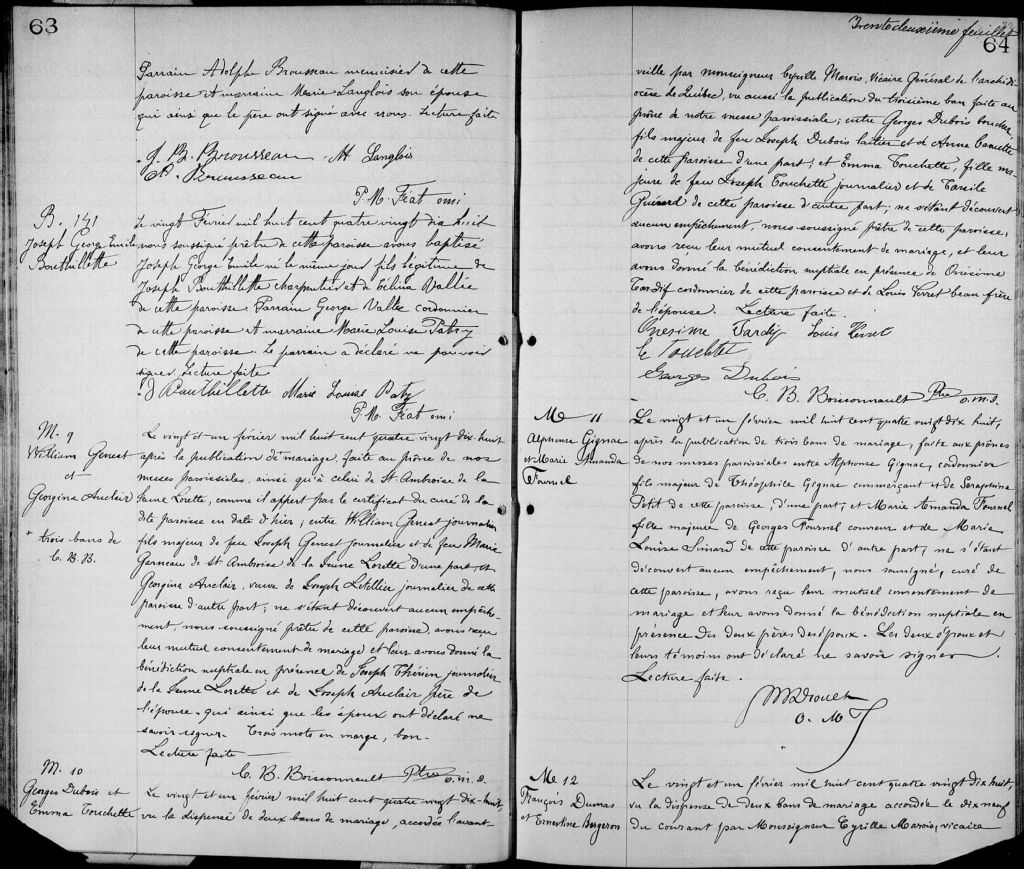 63
Parrain Adolphe Brousseau menuisier de cette
paroisse et marraine Marie Langlois son épouse
qui ainsi que le père ont signé avec nous. Lecture faite
J. B. Brousseau M Langlois
A. Brousseau
P. M. Fiat omi
B. 141
Joseph George Emile
Bouthillette
Le vingt Février mil huit cent quatre vingt dix huit
nous soussigné prêtre de cette paroisse avons baptisé
Joseph George Emile né le même jour fils légitime de
Joseph Bouthillette charpentier et de Célina Vallée
de cette paroisse. Parrain George cordonnier
de cette paroisse et marraine Marie Louise
de cette paroisse. Le parrain a déclaré ne pouvoir
signer. Lecture faite
J Bauthillette Marie Louise
P. M. Fiat omi
M. 9
William Genest
et
Georgina Auclair
+ trois bans de
C. B. B.
Le vingt et un février mil huit cent quatre vingt dix-huit
après la publication de mariage faite au prône de nos
messe paroissiales, ainsi qu'à celui de St. Ambroise de la
Jeune Lorette, comme il appert par le certificat du curé de la
dite paroisse en date d'hier; entre William Genest journalier
fils majeur de feu Joseph Genest journalier et de feu Marie
Garneau de St Ambroise de la Jeune Lorette d'une part, et
Georgina Auclair, veuve de Joseph Letellier journalier de cette
paroisse d'autre part, ne s'étant découvert aucun empêche-
ment, nous soussigné prêtre de cette paroisse, avons reçu
leur mutuel consentement de mariage et leur avons donné la
bénédiction nuptiale en présence de Joseph journalier
de la Jeune Lorette et de Joseph Auclair père de
l'épouse qui ainsi que les époux ont déclaré ne
savoir signer. Trois mots en marge, bon.
Lecture faite
C. B. Boissonnault Ptre o.m.i.
M. 10
Georges Dubois et
Emma Touchette
Le vingt et un février mil huit cent quatre vingt dix-huit,
vu la dispense de deux bans de mariage, accordée l'avant-
Trente deuxième feuillet
64
veille par monseigneur Cyrille Marois, vicaire Général de l'archidi-
ocèse de Québec, vu aussi la publication du troisième ban faite au
prône de notre messe paroissiale; entre Georges Dubois boucher,
fils majeur de feu Joseph Dubois laitier et de Anne
de cette paroisse d'une part; et Emma Touchette, fille ma-
jeure de feu Joseph Touchette journalier et de Tarsile
Guinard de cette paroisse d'autre part; ne s'étant découvert
aucun empêchement, nous soussigné prêtre de cette paroisse,
avons reçu leur mutuel consentement de mariage, et leur
avons donné la bénédiction nuptiale en présence de Onésime
Tardif cordonnier de cette paroisse et de Louis Verret beau frère
de l'épouse. Lecture faite.
Onesime Tardif Louis Verret
E Touchette
Georges Dubois
C. B. Boissonnault Ptre o.m.i.
M 11
Alphonse Gignac
et Marie Amanda
Fournel
Le vingt et un février mil huit cent quatre vingt dix huit,
après la publication de trois bans de mariage, faite aux prônes
de nos messes paroissiales entre Alphonse Gignac, cordonnier
fils majeur de Théophile Gignac commerçant et de Séraphine
Petit de cette paroisse, d'une part, et Marie Amanda Fournel
fille majeure de Georges Fournel couvreur et de Marie
Louise Simard de cette paroisse d'autre part, ne s'étant
découvert aucun empêchement, nous soussigné, curé de
cette paroisse, avons reçu leur mutuel consentement de
mariage et leur avons donné la bénédiction nuptiale en
présence des deux pères des époux. Les deux époux et
leurs témoins ont déclaré ne savoir signer.
Lecture faite.
Drouet
O. M I
M 12
François Dumas
et Ernestine Bergeron
Le vingt et un février mil huit cent quatre vingt dix huit,
vu la dispense de deux bans de mariage accordée le dix neuf
du courant par Monseigneur Cyrille Marois, vicaire